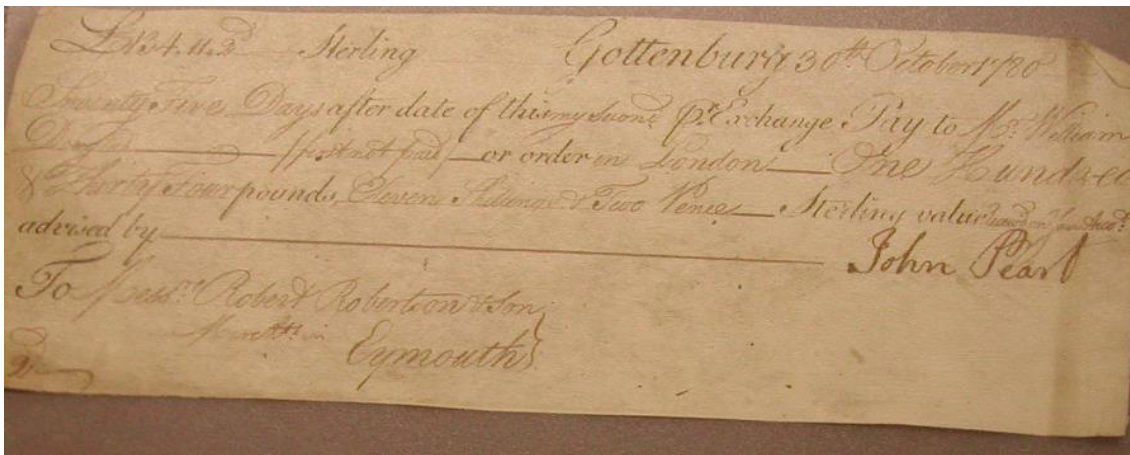 £134.11.2d Sterling Gottenburg 30th October 1780
Seventy Five Days after date of this my Second pr Exchange Pay to Mr William
Douglas (first not paid) or order in London One Hundred
& Thirty Four pounds, Eleven Shillings & Two Pence Sterling value
advised by John Pearl
To Messrs Robert Robertson & Son
Merchts in
Eymouth
2d